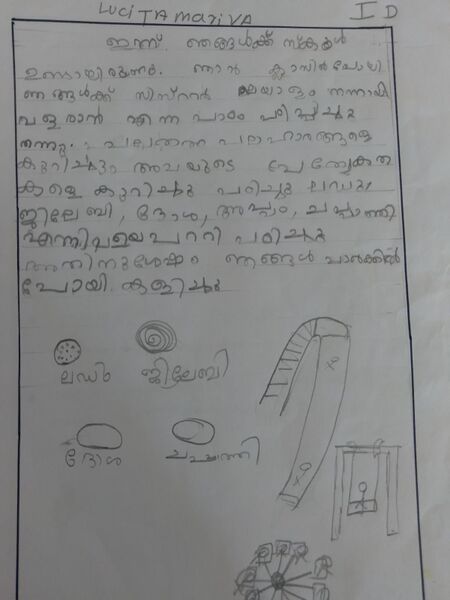 LUCITA MARIYA I D
ഇന്ന് ഞങ്ങൾക്ക് സ്കൂൾ
ഉണ്ടായിരുന്നു. ഞാൻ ക്ലാസിൽപോയി
ഞങ്ങൾക്ക് സിസ്റ്റർ മലയാളം നന്നായി
വളരാൻ എന്ന പാഠം പഠിപ്പിച്ചു
തന്നു. പലതരം പലഹാരങ്ങളെ
കുറിച്ചും അവയുടെ പ്രത്യേകത
കളെ കുറിച്ചു പഠിച്ചു ലഡു,
ജിലേബി, ദോശ, അപ്പം, ചപ്പാത്തി
എന്നിവയെപററി പഠിച്ചു
അതിനുശേഷം ഞങ്ങൾ പാർക്കിൽ
പോയി. കളിച്ചു
ലഡും ജിലേബി
ദോശ ചപ്പത്തി